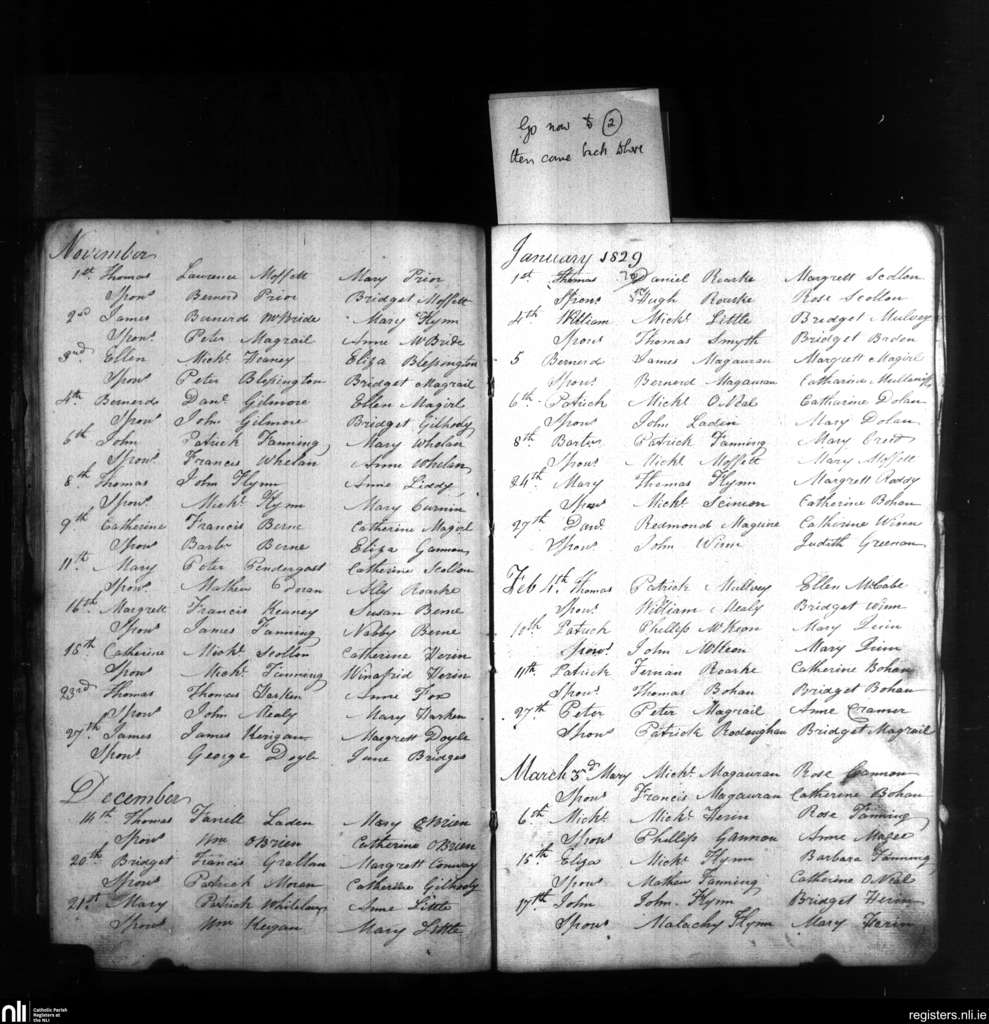 Go now to 2
then come back here
November
1st Thomas Lawrence Moffett Mary Prior
Spons Bernerd Prior Bridget Moffett
2nd James Bernerd McBride Mary Flynn
Spons Peter Magrail Anne McBride
3rd Ellen Michl Heaney Eliza Blessington
Spons Peter Blessington Bridget Magrail
4th Bernerd Danl Gilmore Ellen Magirl
Spons John Gilmore Bridget Gilhooly
6th John Patrick Fanning Mary Whelan
Spons Francis Whelan Anne Whelan
8th Thomas John Flynn Anne Liddy
Spons Michl Flynn Mary Curnin
9th Catherine Francis Berne Catherine Magirl
Spons Barbr Berne Eliza Gannon
11th Mary Peter Pendergast Catherine Scollon
Spons Mathew Odoran Ally Roarke
16th Margrett Francis Keaney Susan Berne
Spons James Fanning Nabby Berne
18th Catherine Michl Scollon Catherine Herin
Spons Michl Finning Winafrid Herin
23rd Thomas Thomas Harken Anne Fox
Spons John Nealy Mary Harken
27th James James Kerigan Margrett Doyle
Spons George Doyle Jane Bridges
December
14th Thomas Farrell Laden Mary OBrien
Spons Wm OBrien Catherine OBrien
20th Bridget Francis Grallan Margrett Conway
Spons Patrick Moran Catherine Gilhooly
21st Mary Patrick Whitelaw Anne Little
Spons Wm Kegan Mary Little
January 1829
1st Thomas Daniel Roarke Margrett Scollon
Spons Hugh Roarke Rose Scollon
4th William Michl Little Bridget Mulvey
Spons Thomas Smyth Bridget Baden
5 Bernerd James Magauran Margrett Magirl
Spons Bernerd Magauran Catharine
6th Patrick Michl ONeal Catharine Dolan
Spons John Laden Mary Dolan
8th Barbr Patrick Fanning Mary
Spons Michl Moffett Mary Moffett
24th Mary Thomas Flynn Margrett Roddy
Spons Michl Scinion Catherine Bohan
27th Danl Redmond Maguire Catherine Winn
Spons John Winn Judith Greenan
Feb 4th Thomas Patrick Mulvey Ellen McCabe
Spons William Nealy Bridget Winn
10th Patrick Phillip McKeon Mary Quin
Spons John McKeon Mary Quin
11th Patrick Fernan Roarke Catherine Bohan
Spons Thomas Bohan Bridget Bohan
27th Peter Peter Magrail Anne Cramer
Spons Patrick Rodoughan Bridget Magrail
March 3d Mary Michl Magauran Rose Gannon
Spons Francis Magauran Catherine Bohan
6th Michl Michl Herin Rose Fanning
Spons Phillip Gannon Anne Magee
15th Eliza Michl Flynn Barbara Fanning
Spons Mathew Fanning Catherine ONeal
17th John John Flynn Bridget Herin
Spons Malachy Flynn Mary Herin
nli Catholic Parish
Registers at
the NLI
registers.nli.ie